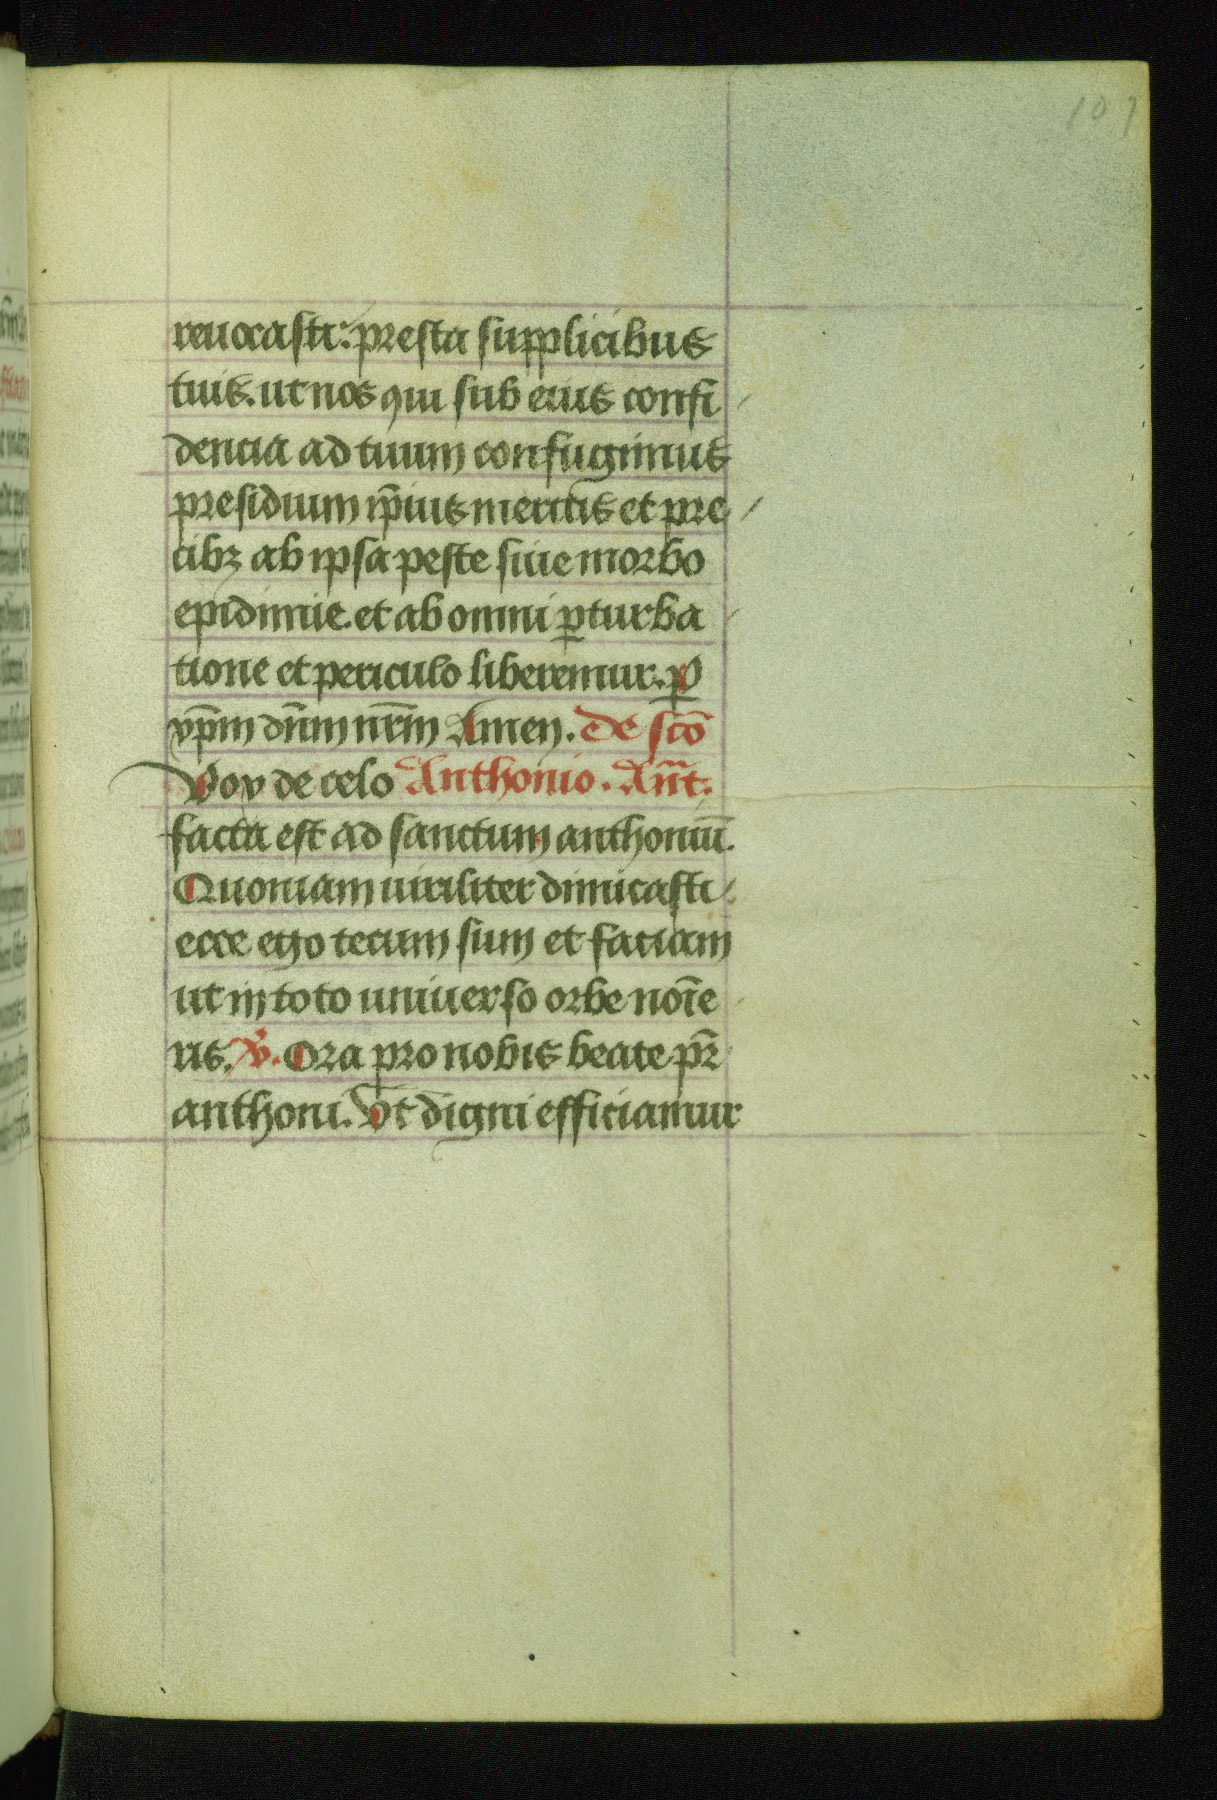 107
reuocasti: presta supplicibus
tuis. ut nos qui sub eius confi
dencia ad tuum confugimus
presidium ip̄ius meritis et pre
cibꝫ ab ipsa peste siue morbo
epidimie. et ab omni ꝑturba
tione et periculo liberemur. ꝑ
xp̄m dn̄m nr̄m Amen. de sc̄o
Vox de celo Anthonio. An̄t.
facta est ad sanctum anthoniū.
Quoniam uiriliter dimicasti
ecce ego tecum sum et faciam
ut in toto uniuerso orbe noīe
ris. ℣. Ora pro nobis beate pr̄
anthoni. Vt digni efficiamur